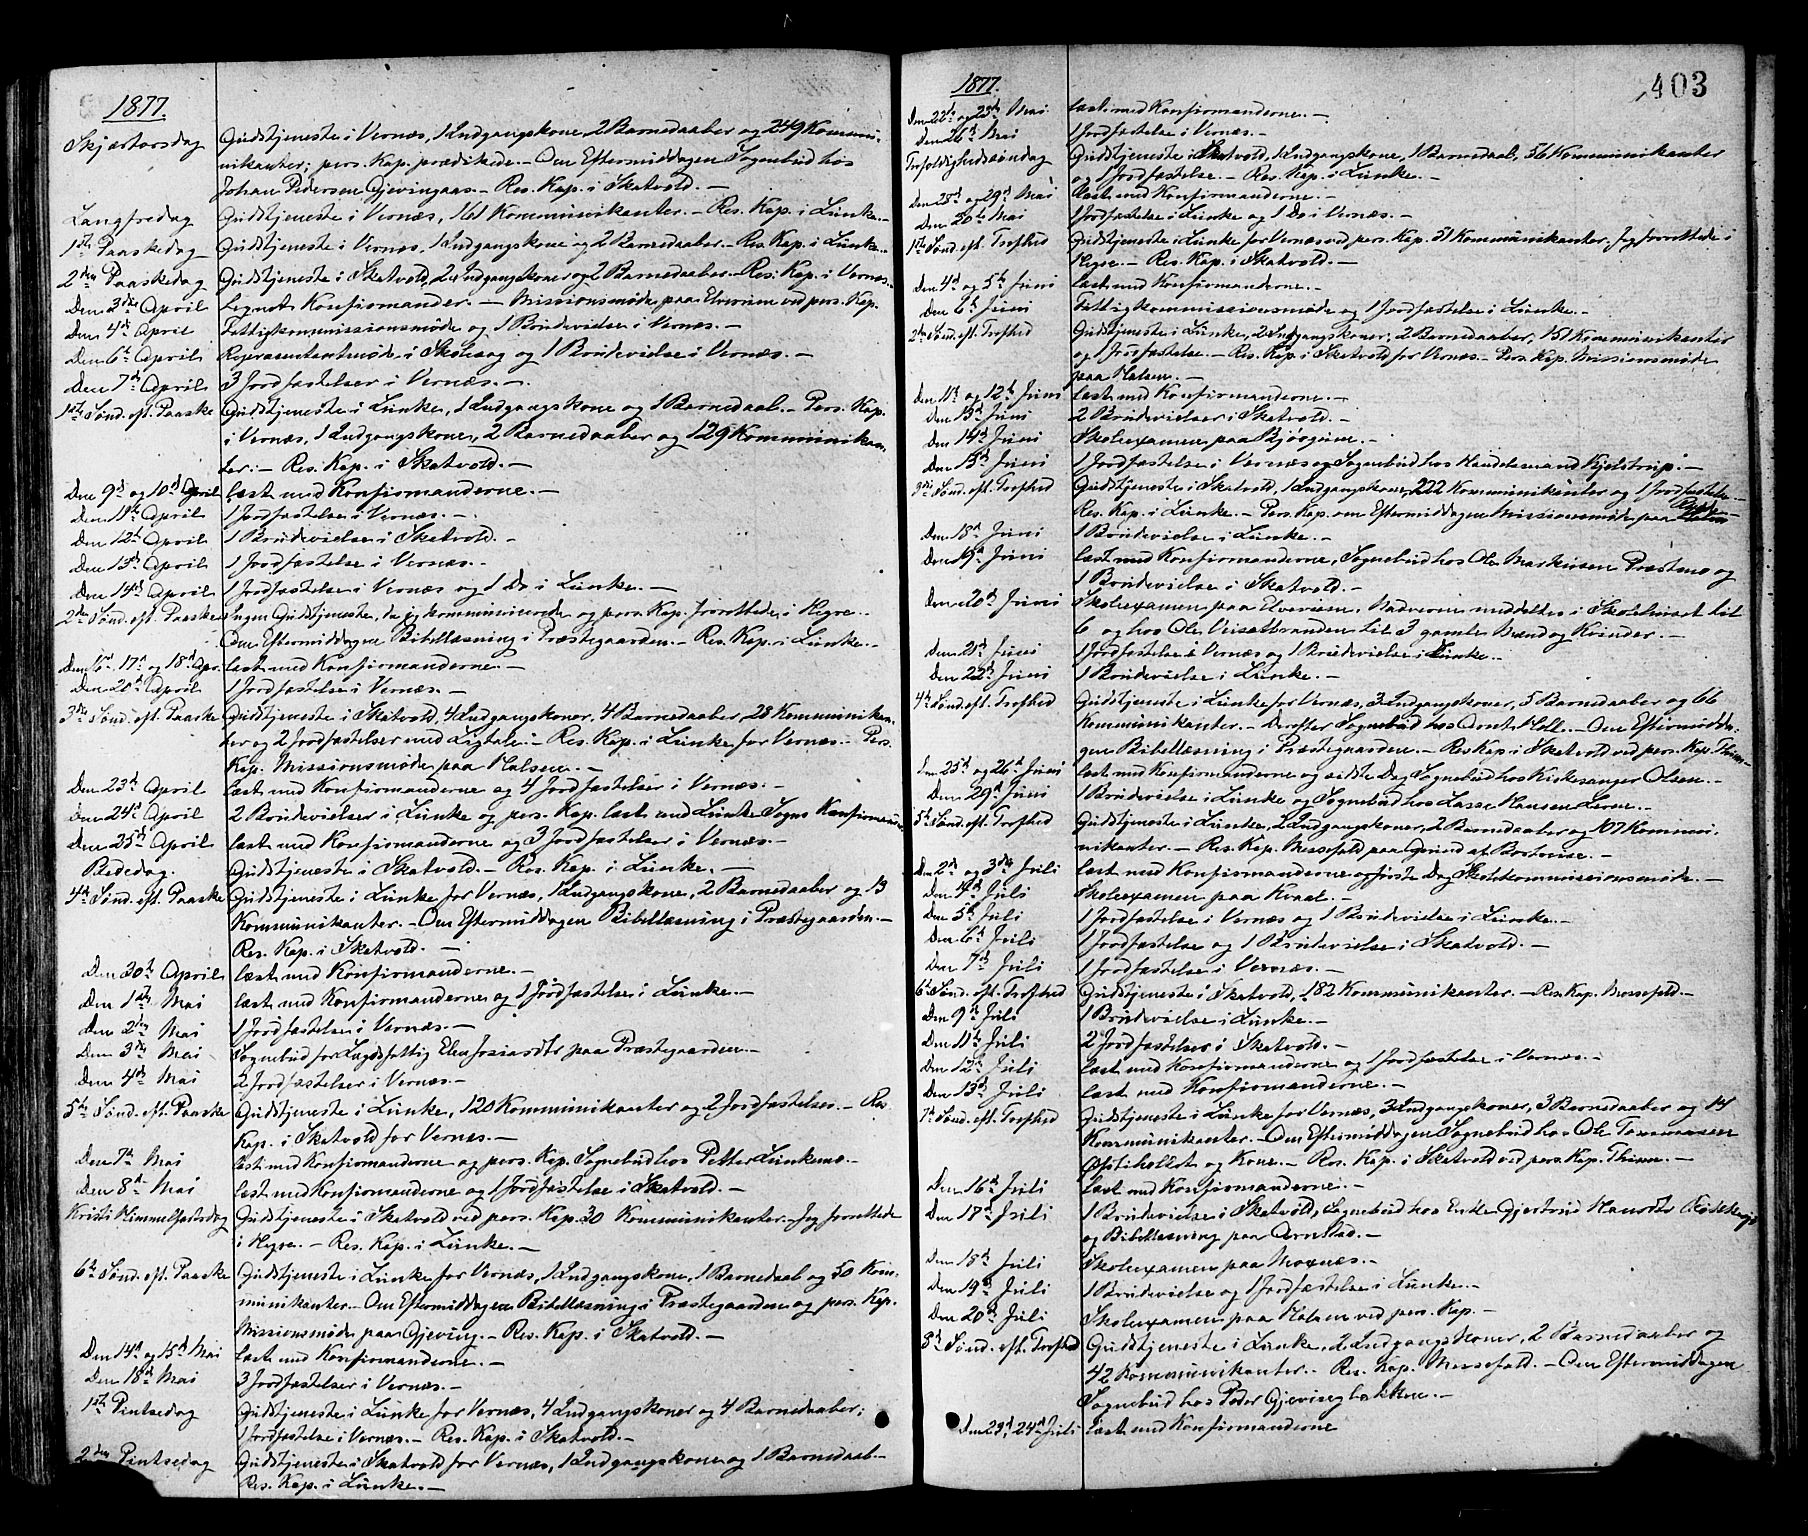 1877.
Skjærtorsdag Gudstjeneste i Vernæs, 1 Indgangskone, 2 Barnedaaber og 249 Kommu-
nikanter; pers. Kap. prædikede. - Om Eftermiddagen Sognebud hos
Johan Pedersen Gjevingaas. - Res. Kap. i Skatvold. -
Langfredag Gudstjeneste i Vernæs, 161 Kommunikanter. - Res. Kap. i Lunke. -
1ste Paaskedag Gudstjeneste i Vernæs, 1 Indgangskone og 2 Barnedaaber. - Res. Kap. i Lunke. -
2den Paaskedag Gudstjeneste i Skatvold, 2 Indgangskoner og 2 Barnedaaber. - Res. Kap. i Vernæs. -
Den 3die April Tegnet Konfirmander. - Missionsmøde paa Elverum ved pers. Kap.
Den 4de April Fattigkommissionsmøde og 1 Brudevielse i Vernæs. -
Den 6te April Repræsentantmøde i Skolesag og 1 Brudevielse i Vernæs. -
Den 7de April 3 Jordfæstelser i Vernæs. -
1ste Sønd. eft. Paaske Gudstjeneste i Lunke, 1 Indgangskone og 1 Barnedaab. - Pers. Kap.
i Vernæs, 1 Indgangskone, 2 Barnedaaber og 129 Kommunikan-
ter. - Res. Kap. i Skatvold. -
Den 9de og 10de April læst med Konfirmanderne. -
Den 11te April 1 Jordfæstelse i Vernæs. -
Den 12te April 1 Brudevielse i Skatvold. -
Den 13de April 1 Jordfæstelse i Vernæs. -
Den 14de April 1 Jordfæstelse i Vernæs og 1 Do i Lunke. -
2den Sønd. eft. Paaske Ingen Gudstjeneste, da jeg kommunicerede og pers. Kap. forrettede i Hegre. -
Om Eftermiddagen Bibellæsning i Præstegaarden. - Res. Kap. i Lunke. -
Den 16de, 17de og 18de Apr. læst med Konfirmanderne. -
Den 21de April 1 Jordfæstelse i Vernæs. -
3die Sønd. eft. Paaske Gudstjeneste i Skatvold, 4 Indgangskoner, 4 Barnedaaber, 28 Kommunikan-
ter og 2 Jordfæstelser med Ligtale. - Res. Kap. i Lunke for Vernæs. - Pers.
Kap. Missionsmøde paa Halsen. -
Den 23de April læst med Konfirmanderne og 4 Jordfæstelser i Vernæs. -
Den 24de April 2 Brudevielser i Lunke og pers. Kap. læst med Lunke Sogns Konfirmander. -
Den 25de April læst med Konfirmanderne og 3 Jordfæstelser i Vernæs. -
Bededag. Gudstjeneste i Skatvold. - Res. Kap. i Lunke. -
4de Sønd. eft. Paaske Gudstjeneste i Lunke for Vernæs, 1 Indgangskone, 2 Barnedaaber og 13
Kommunikanter. - Om Eftermiddagen Bibellæsning i Præstegaarden. -
Res. Kap. i Skatvold. -
Den 30te April læst med Konfirmanderne. -
Den 1ste Mai læst med Konfirmanderne og 1 Jordfæstelse i Lunke. -
Den 2den Mai 1 Jordfæstelse i Vernæs. -
Den 3die Mai Sognebud for Lægdsfattig Elen Josiasdtr paa Præstegaarden. -
Den 4de Mai 2 Jordfæstelser i Vernæs. -
5te Sønd. eft. Paaske Gudstjeneste i Lunke, 120 Kommunikanter og 2 Jordfæstelser. - Res.
Kap. i Skatvold for Vernæs. -
Den 7de Mai læst med Konfirmanderne og pers. Kap. Sognebud hos Petter Lunkemo. -
Den 8de Mai læst med Konfirmanderne og 1 Jordfæstelse i Skatvold. -
Kristi Himmelfartsdag Gudstjeneste i Skatvold ved pers. Kap. 30 Kommunikanter. Jeg forrettede
i Hegre. - Res. Kap. i Lunke. -
6te Sønd. eft. Paaske Gudstjeneste i Lunke for Vernæs, 1 Indgangskone, 1 Barnedaab og 50 Kom-
munikanter. - Om Eftermiddagen Bibellæsning i Præstegaarden og pers. Kap.
Missionsmøde paa Gjeving. - Res. Kap. i Skatvold. -
Den 14de og 15de Mai læst med Konfirmanderne. -
Den 18de Mai 3 Jordfæstelser i Vernæs. -
1ste Pintsedag Gudstjeneste i Lunke for Vernæs, 4 Indgangskoner og 4 Barnedaaber;
1 Jordfæstelse i Vernæs. - Res. Kap. i Skatvold. -
2den Pintsedag Gudstjeneste i Skatvold for Vernæs, 1 Indgangskone og 1 Barnedaab. -
Res. Kap. i Lunke. -
403
1877.
Den 22de og 23de Mai læst med Konfirmanderne. -
Den 26de Mai 1 Jordfæstelse i Vernæs. -
Trefoldighedssøndag Gudstjeneste i Skatvold, 1 Indgangskone, 1 Barnedaab, 56 Kommunikanter
og 1 Jordfæstelse. - Res. Kap. i Lunke. -
Den 28de og 29de Mai læst med Konfirmanderne. -
Den 30te Mai 1 Jordfæstelse i Lunke og 1 Do i Vernæs. -
1ste Sønd. eft. Trefhed Gudstjeneste i Lunke for Vernæs ved pers. Kap. 51 Kommunikanter. Jeg forrettede i
Hegre. - Res. Kap. i Skatvold. -
Den 4de og 5te Juni læst med Konfirmanderne. -
Den 6te Juni Fattigkommissionsmøde og 1 Jordfæstelse i Lunke. -
2den Sønd. eft. Trefhed Gudstjeneste i Lunke, 2 Indgangskoner, 2 Barnedaaber, 151 Kommunikanter
og 1 Jordfæstelse. - Res. Kap. i Skatvold for Vernæs. - Pers. Kap. Missionsmøde
paa Halsen. -
Den 11te og 12te Juni læst med Konfirmanderne. -
Den 13de Juni 2 Brudevielser i Skatvold. -
Den 14de Juni Skoleexamen paa Bjørgum. -
Den 15de Juni 1 Jordfæstelse i Vernæs og Sognebud hos Handelsmand Kjelstrup. -
3die Sønd. eft. Trefhed Gudstjeneste i Skatvold, 1 Indgangskone, 222 Kommunikanter og 1 Jordfæstelse. -
Res. Kap. i Lunke. - Pers. Kap. om Eftermiddagen Missionsmøde paa
Den 18de Juni 1 Brudevielse i Lunke. -
Den 19de Juni læst med Konfirmanderne, Sognebud hos Ole Markussen Præstmo og
1 Brudevielse i Skatvold. -
Den 20de Juni Skoleexamen paa Elverum, Nadveren meddeltes i Skolehuset til
6 og hos Ole Veisetbranden til 3 gamle Mænd og Kvinder. -
Den 21de Juni 1 Jordfæstelse i Vernæs og 1 Brudevielse i Lunke. -
Den 22de Juni 1 Brudevielse i Lunke. -
4de Sønd. eft. Trefhed Gudstjeneste i Lunke for Vernæs, 3 Indgangskoner, 5 Barnedaaber og 66
Kommunikanter. - Derefter Sognebud hos Arnt Hell. - Om Eftermidda-
gen Bibellæsning i Præstegaarden. - Res. Kap. i Skatvold ved pers. Kap. Thiem. -
Den 25de og 26de Juni læst med Konfirmanderne og sidste Dag Sognebud hos Kirkesanger Olsen. -
Den 29de Juni 1 Brudevielse i Lunke og Sognebud hos Lasse Hansen Leren. -
5te Sønd. eft. Trefhed Gudstjeneste i Lunke, 2 Indgangskoner, 2 Barnedaaber og 107 Kommu-
nikanter. - Res. Kap. Messefald paa Grund af Bortreise. -
Den 2den og 3die Juli læst med Konfirmanderne og første Dag Skolekommissionsmøde. -
Den 4de Juli Skoleexamen paa Kvaal. -
Den 5te Juli 1 Jordfæstelse i Vernæs og 1 Brudevielse i Lunke. -
Den 6te Juli 1 Jordfæstelse og 1 Brudevielse i Skatvold. -
Den 7de Juli 1 Jordfæstelse i Vernæs. -
6te Sønd. eft. Trefhed Gudstjeneste i Skatvold, 182 Kommunikanter. - Res. Kap. Messefald. -
Den 9de Juli 1 Brudevielse i Lunke. -
Den 11te Juli 2 Jordfæstelser i Skatvold. -
Den 12te Juli læst med Konfirmanderne og 1 Jordfæstelse i Vernæs. -
Den 13de Juli læst med Konfirmanderne. -
7de Sønd. eft. Trefhed Gudstjeneste i Lunke for Vernæs, 3 Indgangskoner, 3 Barnedaaber og 14
Kommunikanter. - Om Eftermiddagen Sognebud hos Ole Tommassen
og Kone. - Res. Kap. i Skatvold ved pers. Kap. Thiem. -
Den 16de Juli læst med Konfirmanderne. -
Den 17de Juli 1 Brudevielse i Skatvold, Sognebud hos Enke Gjertrud Hansdtr
og Bibellæsning paa Arnstad. -
Den 18de Juli Skoleexamen paa Moxnæs. -
Den 19de Juli 1 Brudevielse og 1 Jordfæstelse i Lunke. -
Den 20de Juli Skoleexamen paa Halsen ved pers. Kap. -
8de Sønd. eft. Trefhed Gudstjeneste i Lunke, 2 Indgangskoner, 2 Barnedaaber og
42 Kommunikanter. - Res. Kap. Messefald. - Om Eftermiddagen
Sognebud hos Peder Gjevingbakken. -
Den 23de, 24de Juli læst med Konfirmanderne